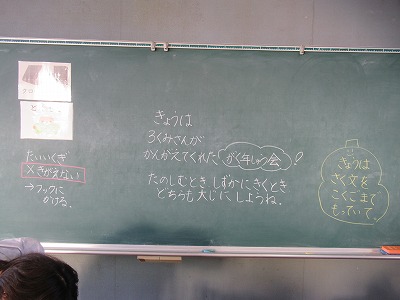 たいいくぎ
×きがえない
→フックに
かける.
きょうは
3くみさんが
かんがえてくれた がく年しゅう会!
たのしむとき しずかにきくとき
どちらも大じにしようね.
きょうは
さく文を
もっていて.